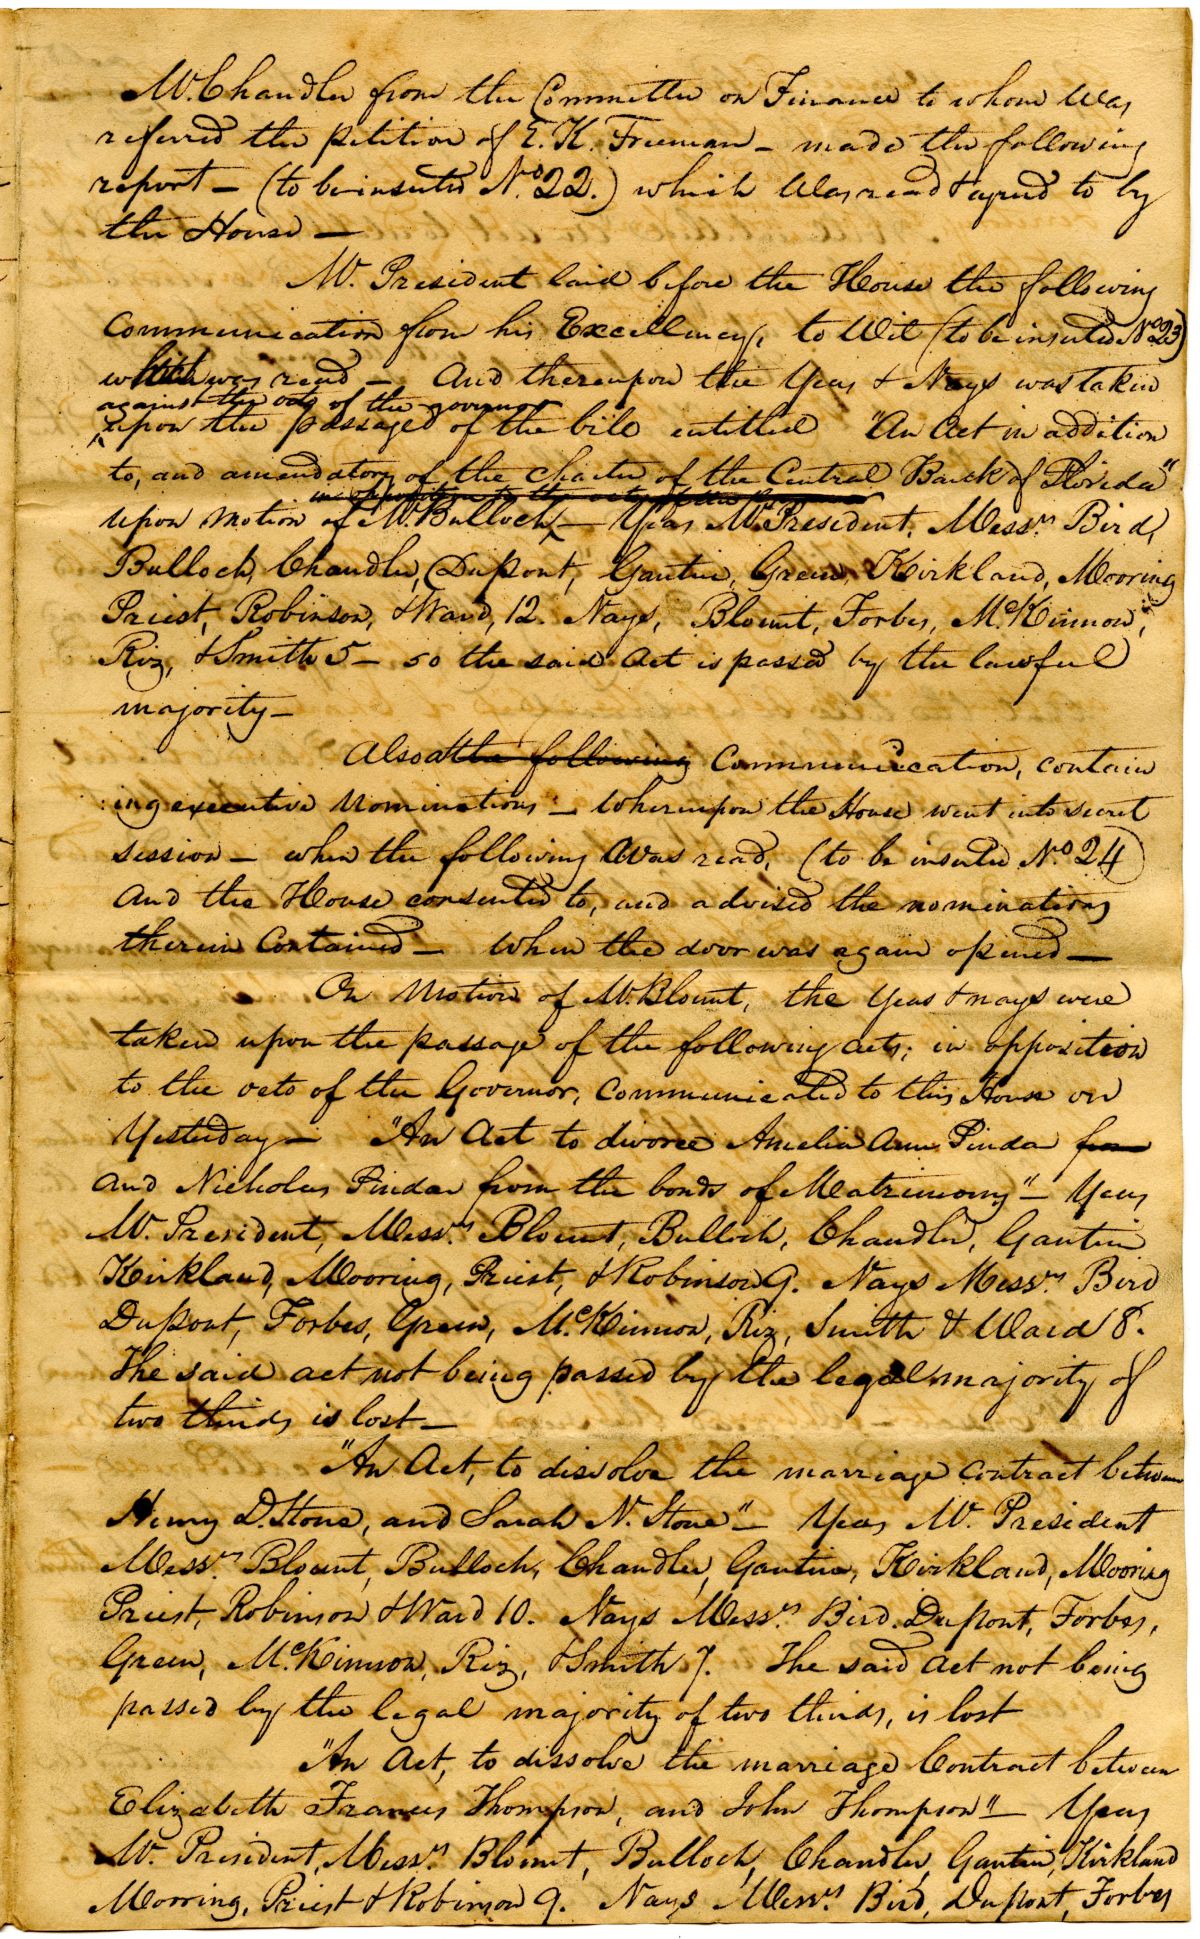 Mr. Chandler from the Committee on Finance to whom was
referred the petition of E. K. Freeman - made the following
report - (to be inserted No. 22.) which was read & agreed to by
the House -
Mr. President laid before the House the following
Communication from his Excellency, to Wit (to be inserted No 23)
which was read - And thereupon the Yeas & Nays was taken
against the veto of the governor
upon the passage of the bill entitled "An Act in addition
to, and amendatory of the charter of the Central Bank of Florida"
in opposition to the veto of the governor
upon motion of Mr. Bulloch - Yeas Mr. President, Messrs. Bird,
Bulloch, Chandler, Dupont, Gautier, Green, Kirkland, Mooring
Priest, Robinson, & Ward, 12. Nays, Blount, Forbes, McKinnon,
Riz, & Smith 5 - so the said Act is passed by the lawful
majority -
Also a the following Communication, contain
ing executive Nominations - Whereupon the House went into secret
session - when the following was read, (to be inserted No 24)
And the House consented to, and advised the nominations
therein Contained - When the door was again opened -
On Motion of Mr. Blount, the Yeas & nays were
taken upon the passage of the following acts; in opposition
to the veto of the Governor, Communicated to this House on
Yesterday - "An Act to divorce Amelia Ann Pindar from
and Nicholas Pindar from the bonds of Matrimony" - Yeas
Mr. President, Messrs. Blount, Bulloch, Chandler, Gautier
Kirkland, Mooring, Priest, & Robinson 9. Nays Messrs. Bird
Dupont, Forbes, Green, McKinnon, Riz, Smith & Ward 8.
The said act not being passed by the legal majority of
two thirds is lost -
"An Act, to dissolve the marriage contract between
Henry D. Stone, and Sarah N. Stone" - Yeas Mr. President
Messrs. Blount, Bulloch, Chandler, Gautier, Kirkland, Mooring
Priest, Robinson & Ward 10. Nays Messrs. Bird, Dupont, Forbes,
Green, McKinnon, Riz, & Smith 7. The said act not being
passed by the legal majority of two thirds, is lost
"An Act, to dissolve the marriage Contract between
Elizabeth Frances Thompson, and John Thompson" - Yeas
Mr. President, Messrs. Blount, Bulloch, Chandler, Gautier, Kirkland
Morring, Priest & Robinson 9. Nays Messrs. Bird, Dupont, Forbes